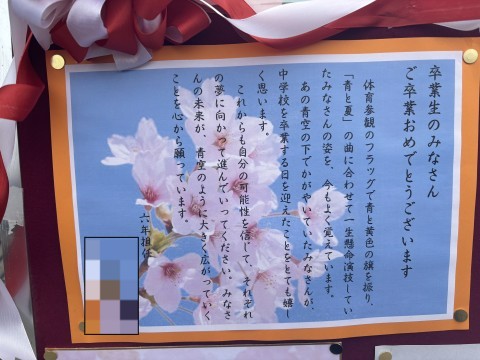 卒業生のみなさん
ご卒業おめでとうございます
体育参観のフラッグで青と黄色の旗を振り、
「青と夏」の曲に合わせて一生懸命演技してい
たみなさんの姿を、今もよく覚えています。
あの青空の下でかがやいていたみなさんが、
中学校を卒業する日を迎えたことをとても嬉し
く思います。
これからも自分の可能性を信じて、それぞれ
の夢に向かって進んでいってください。みなさ
んの未来が、青空のように大きく広がっていく
ことを心から願っています。
六年担任